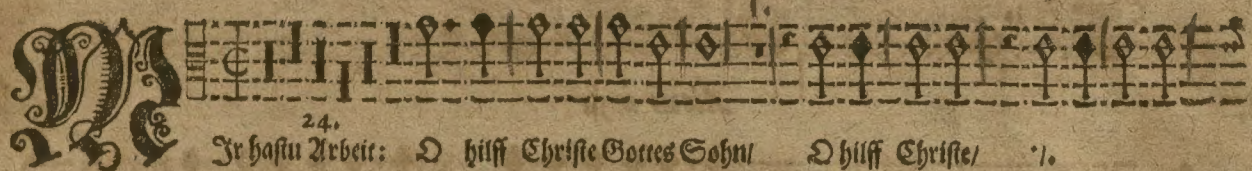 24.
MIr hastu Arbeit: O hilff Christe Gottes Sohn/ O hilff Christe/ ·/.